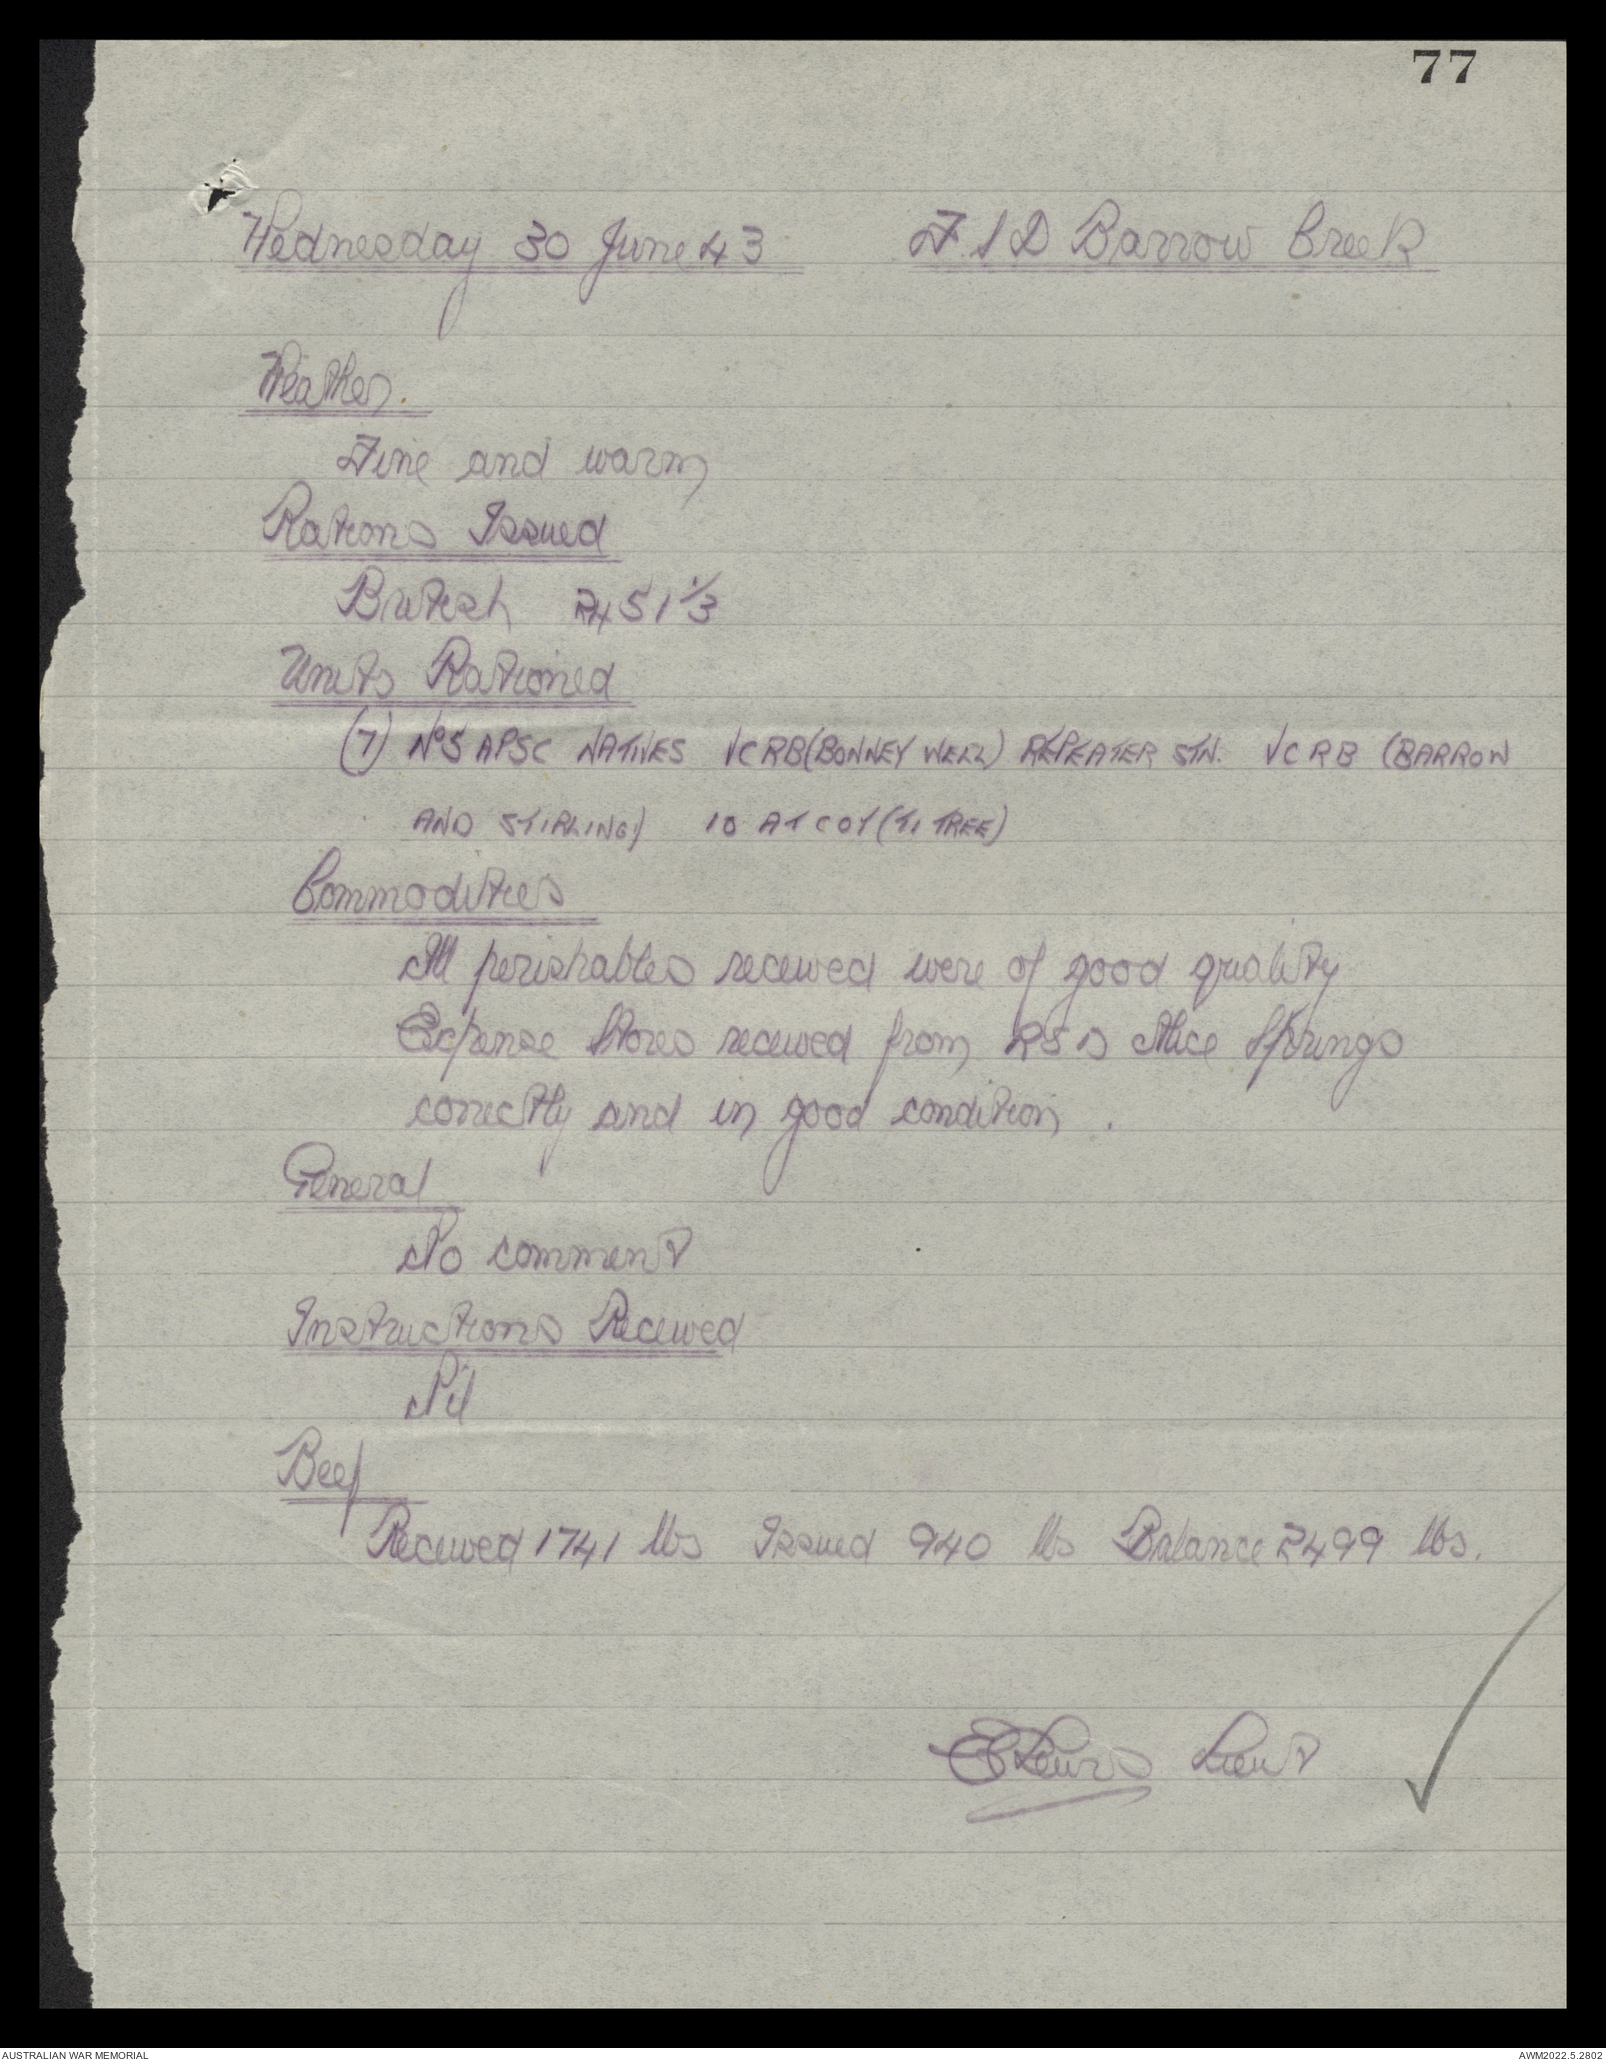 77
Wednesday 30 June 43 F.S D Barrow Creek
Weather.
Fine and warm
Rations Issued
British 2451 1/3
Units Rationed
(7) No 5 APSC NATIVES VCRB (BONNEY WELL) REPEATER STN. VCRB (BARROW
AND STIRLING) 10 AT COY (TI TREE)
Commodities
All perishables received were of good quality
Expense Stores received from Alice Springs
correctly and in good condition.
General
No comment
Instructions Received
Nil
Beef
Received 1741 lbs Issued 940 lbs Balance 2499 lbs.
Lewis Lieut
AUSTRALIAN WAR MEMORIAL AWM2022.5.2802